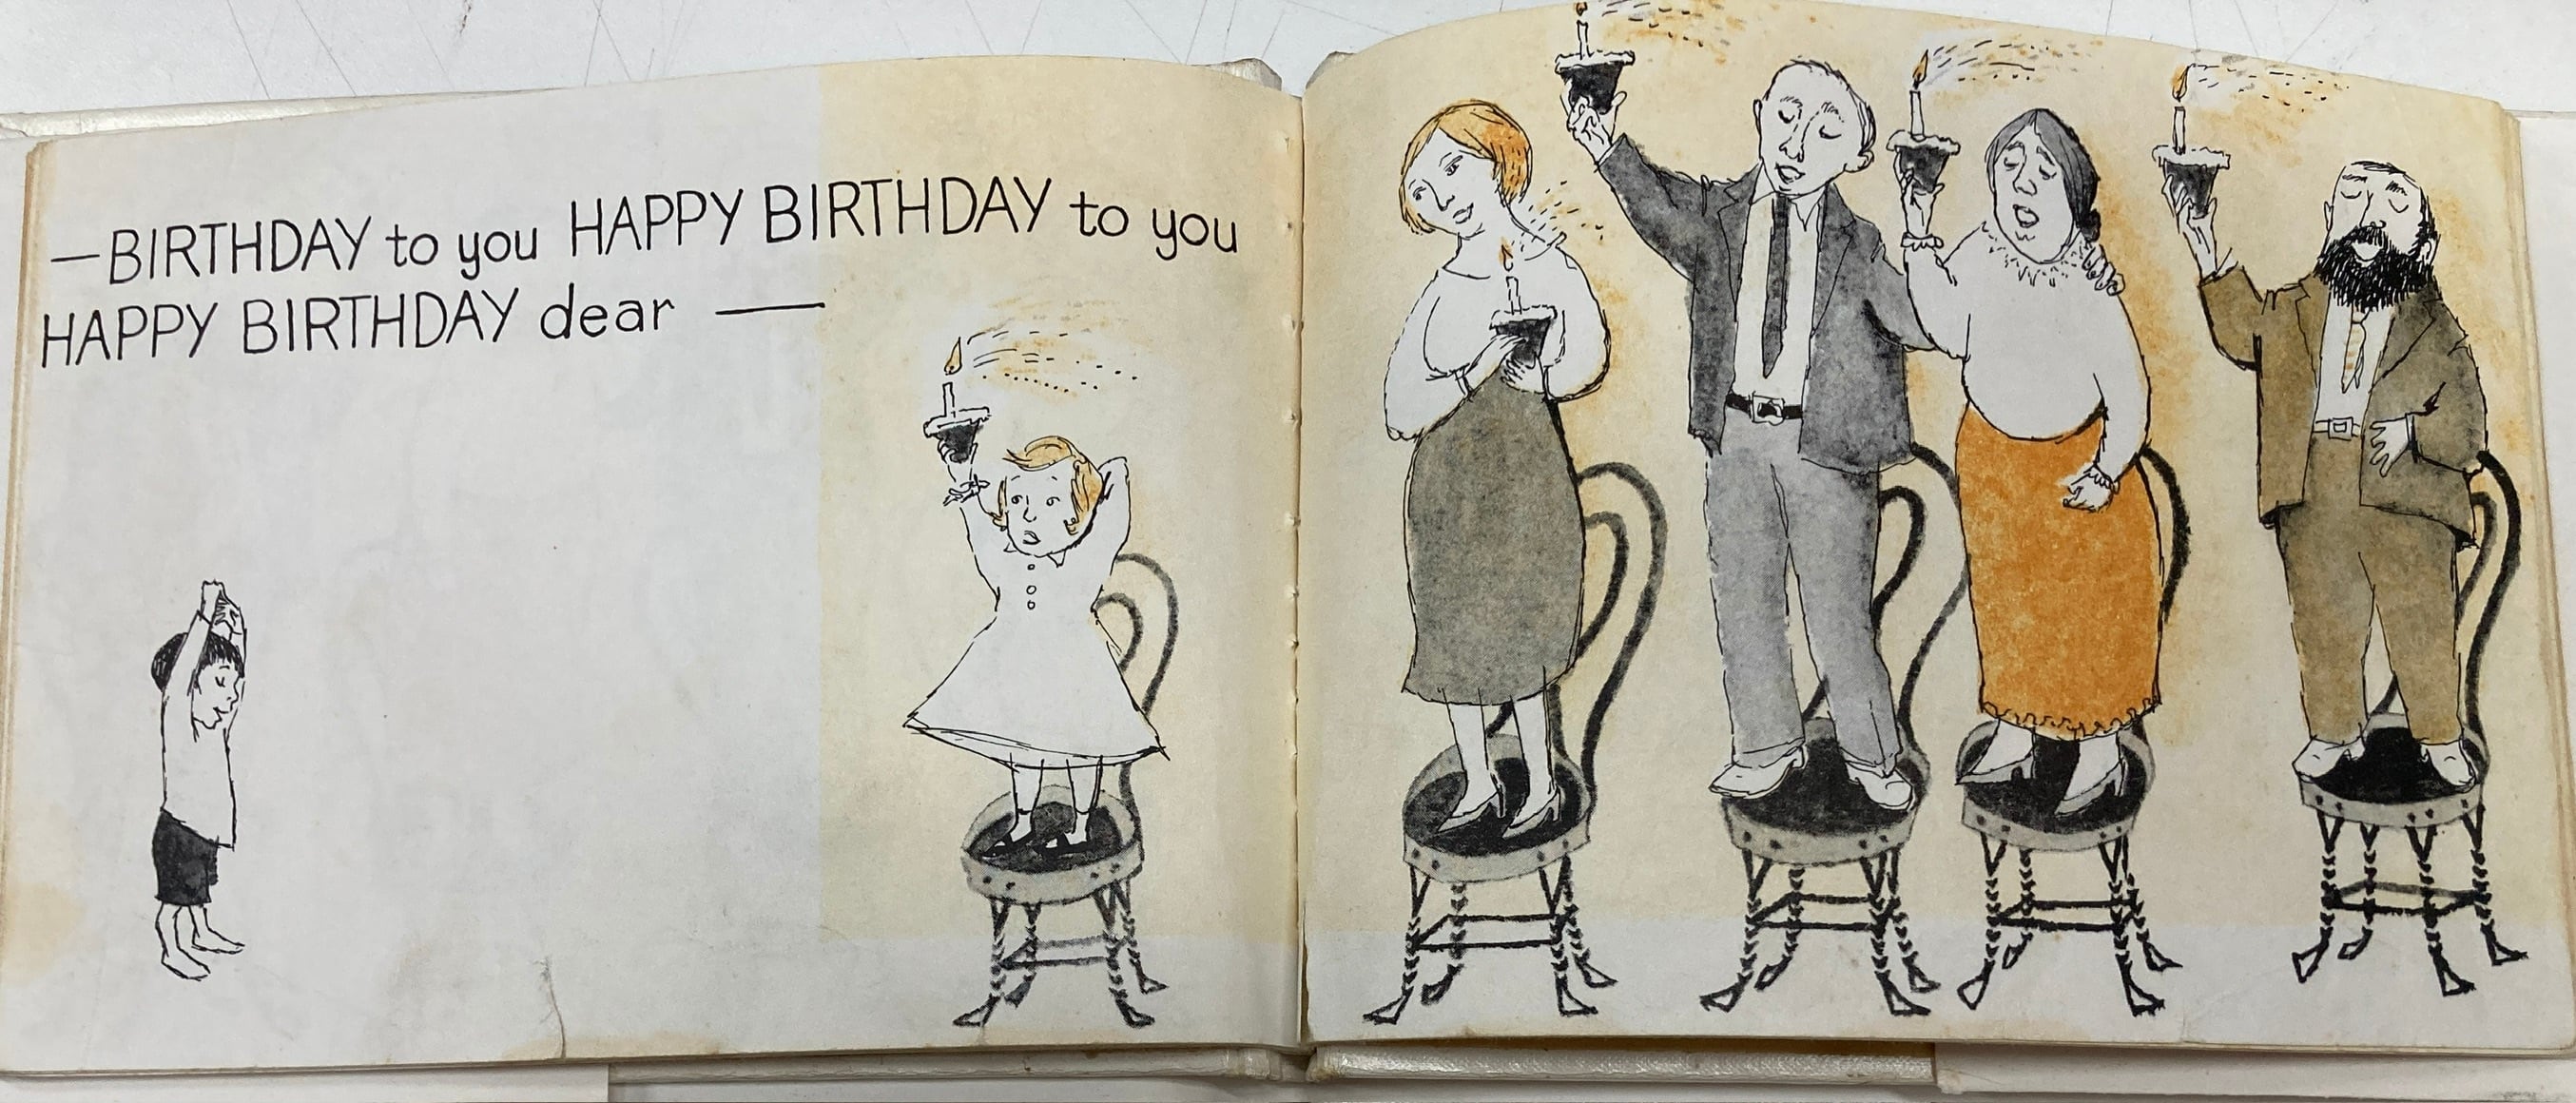 —BIRTHDAY to you HAPPY BIRTHDAY to you
HAPPY BIRTHDAY dear —